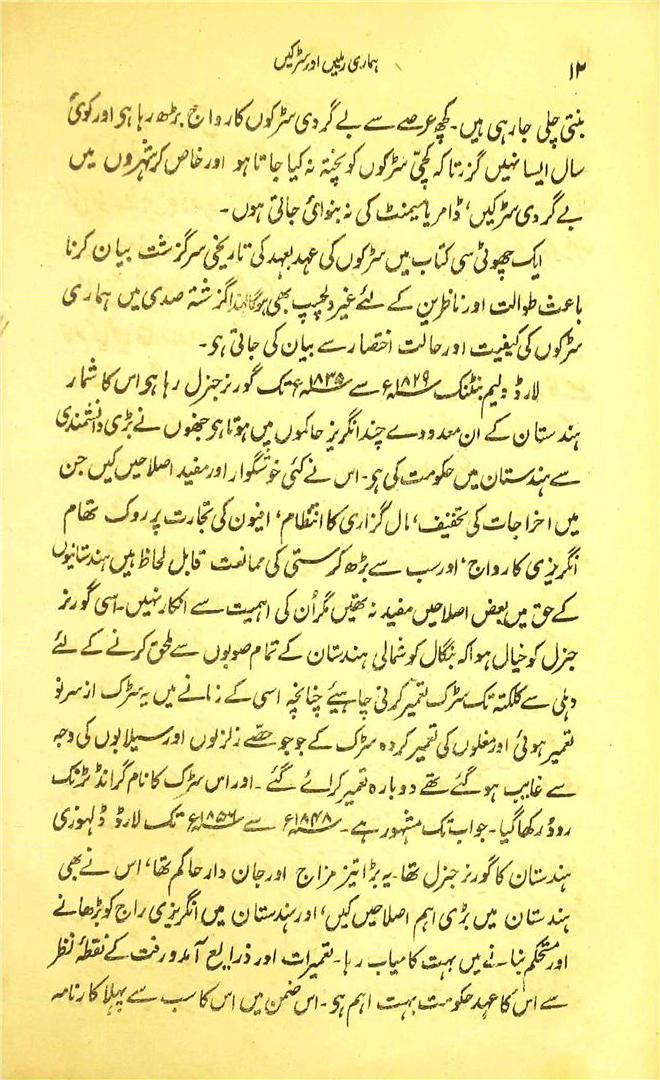 ۱۲
ہماری ریلیں اور سڑکیں
بنتی چلی جارہی ہیں۔ کچھ عرصے سے بے گردی سڑکوں کا رواج بڑھ رہا ہی اور کوئی
سال ایسا نہیں گزرتا کہ کچی سڑکوں کو پختہ نہ کیا جاتا ہو اور خاص کر شہروں میں
بے گردی سڑکیں، ڈامر یا سیمنٹ کی نہ بنوائی جاتی ہوں۔
ایک چھوٹی سی کتاب میں سڑکوں کی عہد بعہد کی تاریخی سرگزشت بیان کرنا
باعث طوالت اور ناظرین کے لئے غیر دلچسپ بھی ہوگا لہٰذا گزشتہ صدی میں ہماری
سڑکوں کی کیفیت اور حالت اختصار سے بیان کی جاتی ہی۔
لارڈ ولیم بنٹنک ۱۸۲۹ء سے ۱۸۳۵ء تک گورنر جنرل رہا ہی اس کا شمار
ہندستان کے ان معدودے چند انگریز حاکموں میں ہوتا ہی جنھوں نے بڑی دانشمندی
سے ہندستان میں حکومت کی ہی۔ اس نے کئی خوشگوار اور مفید اصلاحیں کیں جن
میں اخراجات کی تخفیف، مال گزاری کا انتظام، افیون کی تجارت پر روک تھام
انگریزی کا رواج، اور سب سے بڑھ کر ستی کی ممانعت قابل لحاظ ہیں ہندستانیوں
کے حق میں بعض اصلاحیں مفید نہ تھیں مگر اُن کی اہمیت سے انکار نہیں۔ اسی گورنر
جنرل کو خیال ہوا کہ بنگال کو شمالی ہندستان کے تمام صوبوں سے ملحق کرنے کے لئے
دہلی سے کلکتہ تک سڑک تعمیر کرنی چاہیئے چنانچہ اسی کے زمانے میں یہ سڑک از سر نو
تعمیر ہوئی اور مغلوں کی تعمیر کردہ سڑک کے جو جو حصّے زلزلوں اور سیلابوں کی وجہ
سے غایب ہو گئے تھے دوبارہ تعمیر کرائے گئے۔ اور اس سڑک کا نام گرانڈ ٹرنک
روڈ رکھا گیا۔ جو اب تک مشہور ہے۔ ۱۸۴۸ء سے ۱۸۵۶ء تک لارڈ ڈلہوزی
ہندستان کا گورنر جنرل تھا۔ یہ بڑا تیز مزاج اور جان دار حاکم تھا، اس نے بھی
ہندستان میں بڑی اہم اصلاحیں کیں، اور ہندستان میں انگریزی راج کو بڑھانے
اور مستحکم بنانے میں بہت کامیاب رہا۔ تعمیرات اور ذرایع آمد و رفت کے نقطۂ نظر
سے اس کا عہد حکومت بہت اہم ہی۔ اس ضمن میں اس کا سب سے پہلا کارنامہ